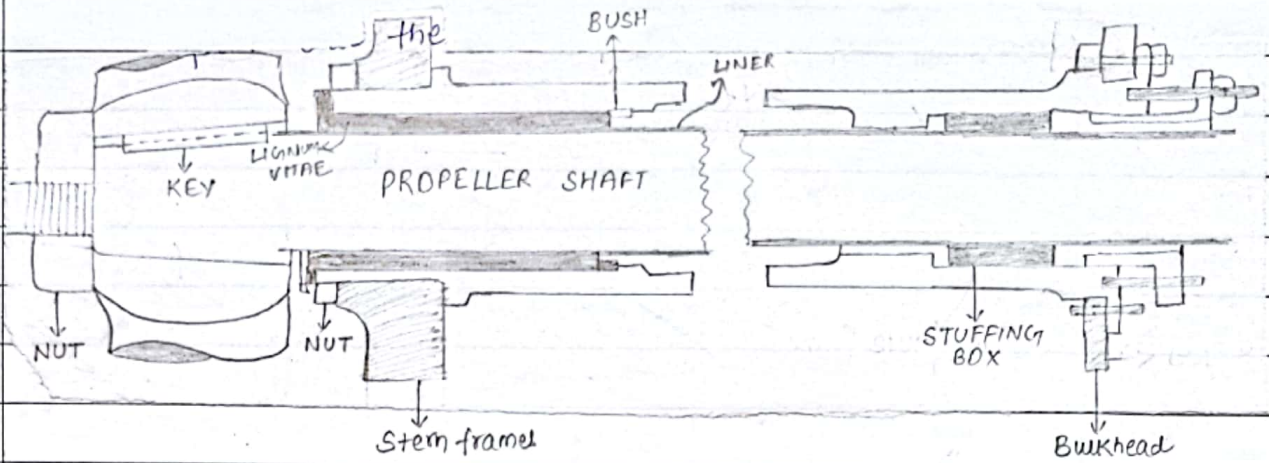 BUSH
the
LINER
LIGNUM
VITAE
KEY
PROPELLER SHAFT
NUT
NUT
STUFFING
BOX
Stern frame
Bulkhead